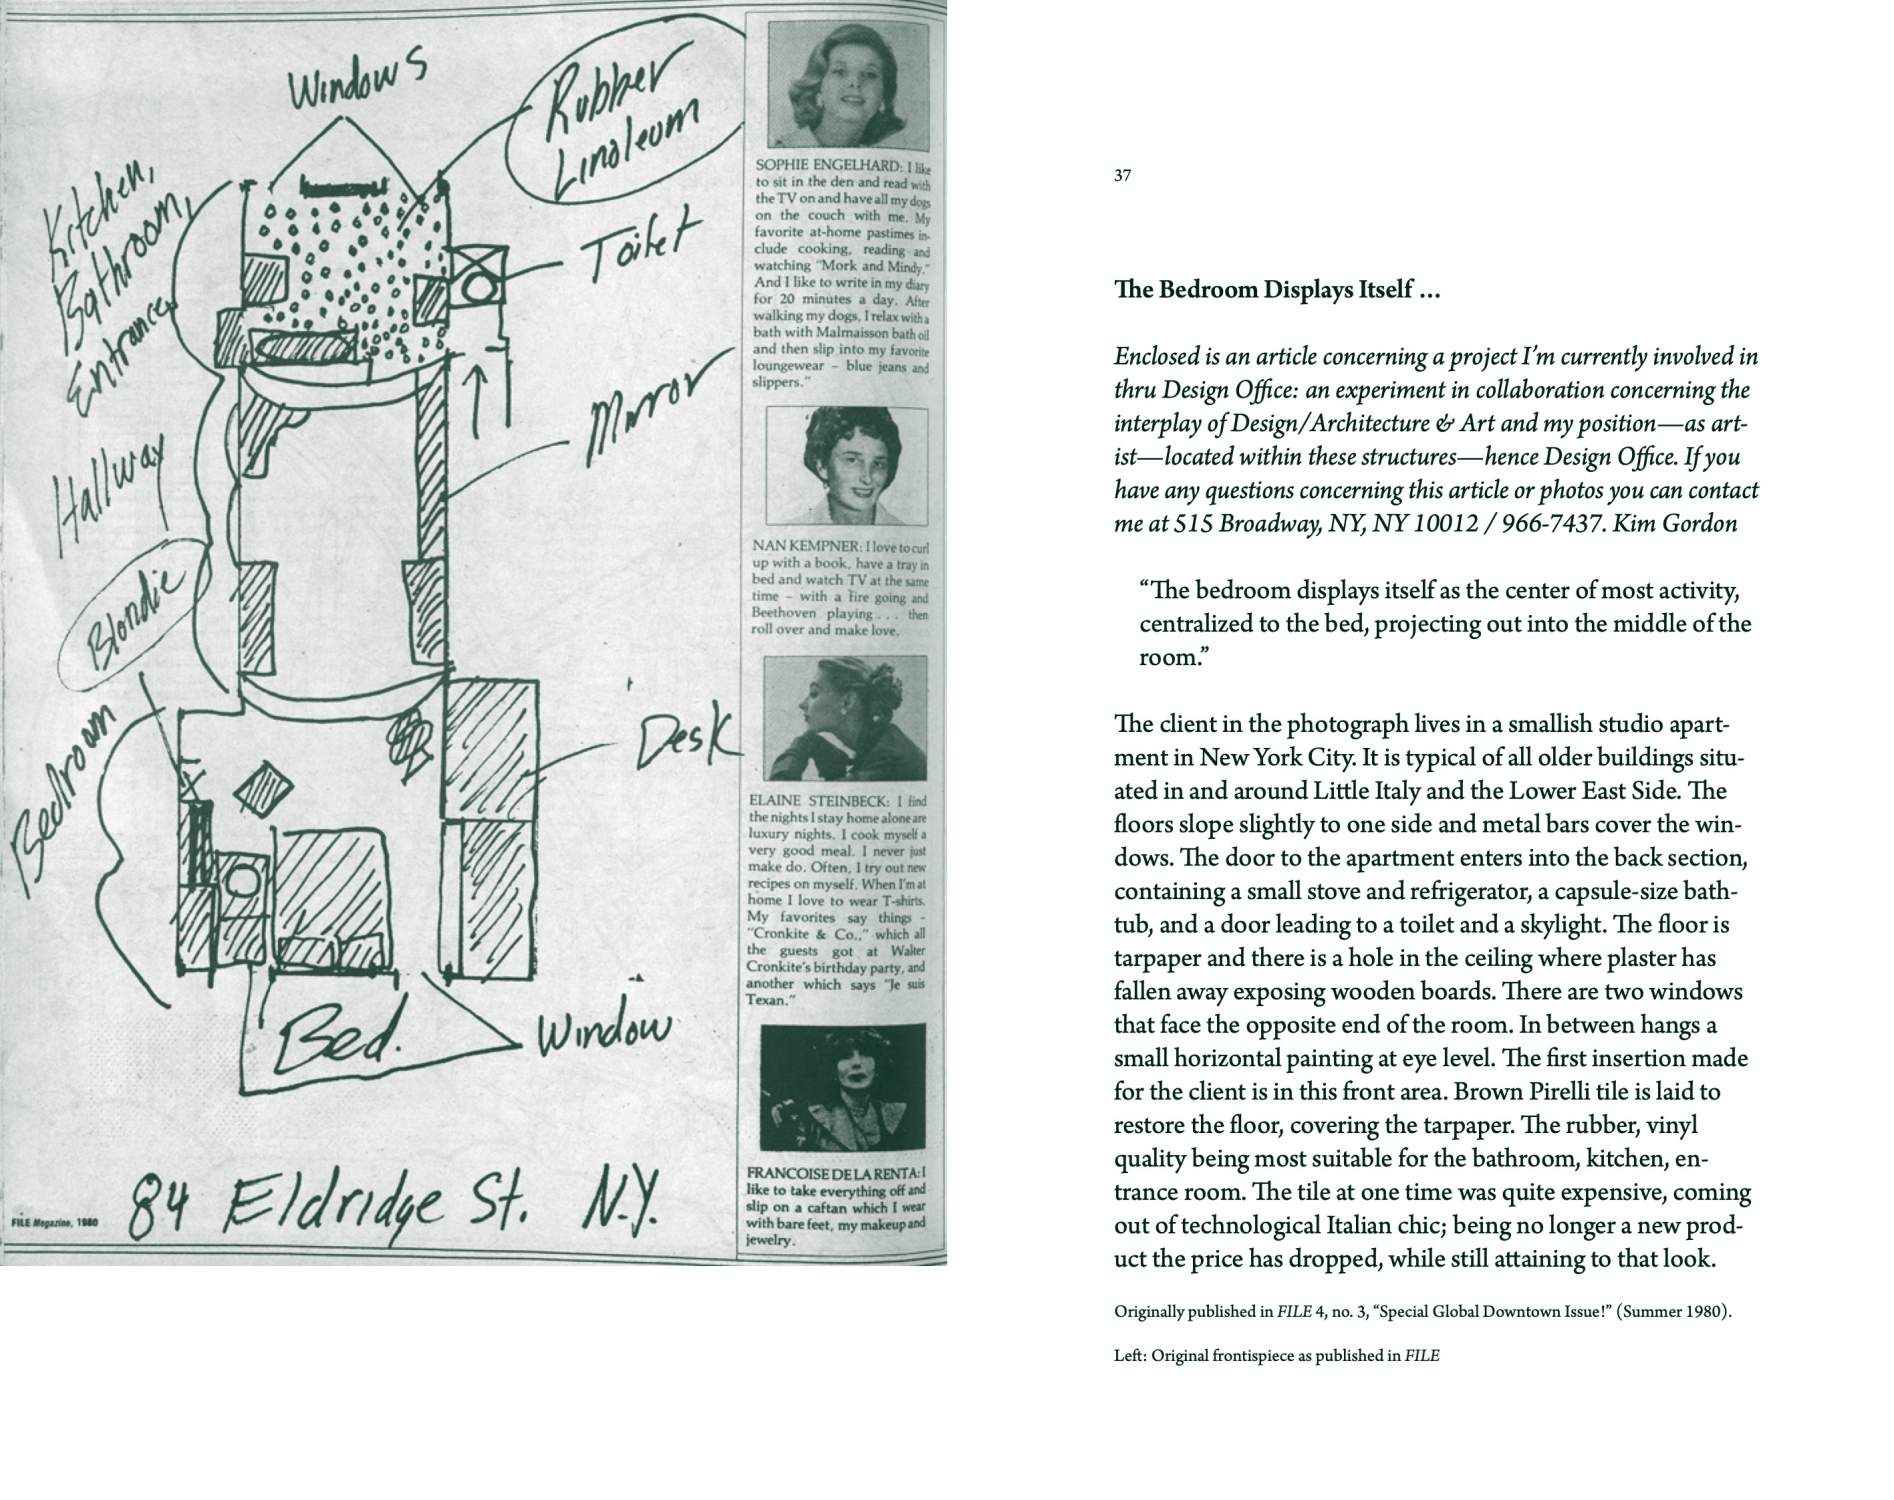 Windows
Rubber
Linoleum
Kitchen,
Bathroom,
Entrance
Toilet
Mirror
Hallway
Blondie
Bedroom
Desk
Bed.
Window
84 Eldridge St. N.Y.
FILE Megazine, 1980
SOPHIE ENGELHARD: I like
to sit in the den and read with
the TV on and have all my dogs
on the couch with me. My
favorite at-home pastimes in-
clude cooking, reading and
watching "Mork and Mindy."
And I like to write in my diary
for 20 minutes a day. After
walking my dogs, I relax with a
bath with Malmaisson bath oil
and then slip into my favorite
loungewear – blue jeans and
slippers."
NAN KEMPNER: I love to curl
up with a book, have a tray in
bed and watch TV at the same
time – with a fire going and
Beethoven playing . . . then
roll over and make love.
ELAINE STEINBECK: I find
the nights I stay home alone are
luxury nights. I cook myself a
very good meal. I never just
make do. Often, I try out new
recipes on myself. When I'm at
home I love to wear T-shirts.
My favorites say things –
"Cronkite & Co.," which all
the guests got at Walter
Cronkite's birthday party, and
another which says "Je suis
Texan."
FRANCOISE DE LA RENTA: I
like to take everything off and
slip on a caftan which I wear
with bare feet, my makeup and
jewelry.
37
The Bedroom Displays Itself …
Enclosed is an article concerning a project I'm currently involved in
thru Design Office: an experiment in collaboration concerning the
interplay of Design/Architecture & Art and my position—as art-
ist—located within these structures—hence Design Office. If you
have any questions concerning this article or photos you can contact
me at 515 Broadway, NY, NY 10012 / 966-7437. Kim Gordon
"The bedroom displays itself as the center of most activity,
centralized to the bed, projecting out into the middle of the
room."
The client in the photograph lives in a smallish studio apart-
ment in New York City. It is typical of all older buildings situ-
ated in and around Little Italy and the Lower East Side. The
floors slope slightly to one side and metal bars cover the win-
dows. The door to the apartment enters into the back section,
containing a small stove and refrigerator, a capsule-size bath-
tub, and a door leading to a toilet and a skylight. The floor is
tarpaper and there is a hole in the ceiling where plaster has
fallen away exposing wooden boards. There are two windows
that face the opposite end of the room. In between hangs a
small horizontal painting at eye level. The first insertion made
for the client is in this front area. Brown Pirelli tile is laid to
restore the floor, covering the tarpaper. The rubber, vinyl
quality being most suitable for the bathroom, kitchen, en-
trance room. The tile at one time was quite expensive, coming
out of technological Italian chic; being no longer a new prod-
uct the price has dropped, while still attaining to that look.
Originally published in FILE 4, no. 3, "Special Global Downtown Issue!" (Summer 1980).
Left: Original frontispiece as published in FILE